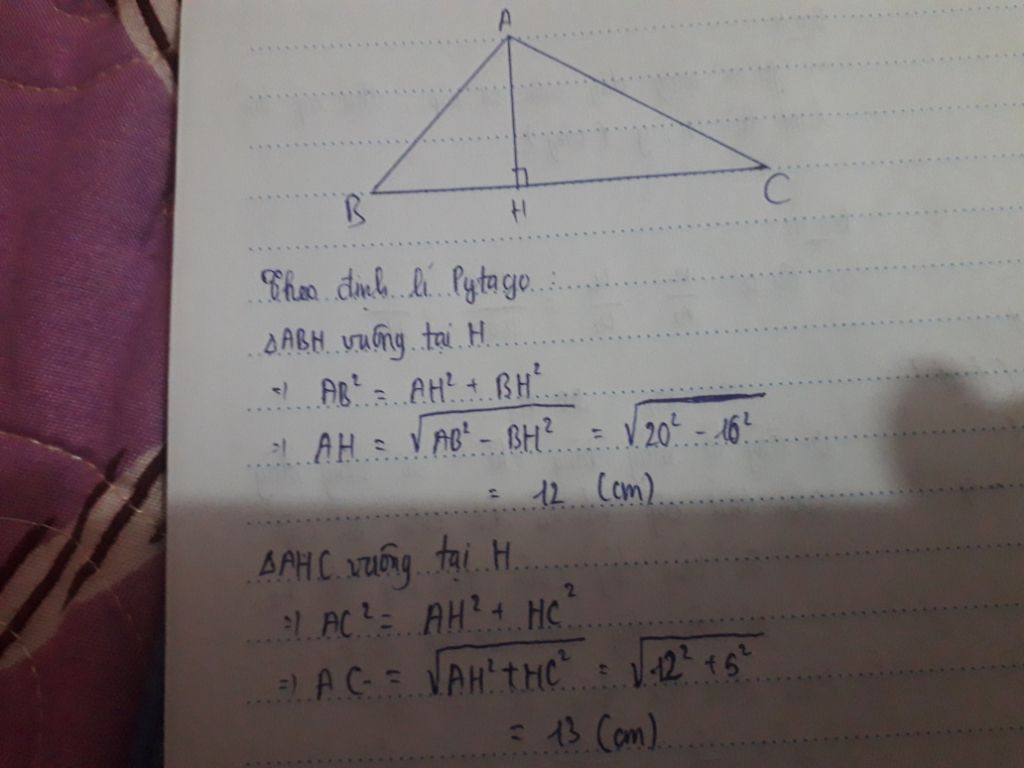 A
B
H
C
Theo định lí Pytago :
ΔABH vuông tại H
=) AB² = AH² + BH²
=) AH = √(AB² - BH²) = √(20² - 16²)
= 12 (cm)
ΔAHC vuông tại H
=) AC² = AH² + HC²
=) AC = √(AH² + HC²) = √(12² + 5²)
= 13 (cm)